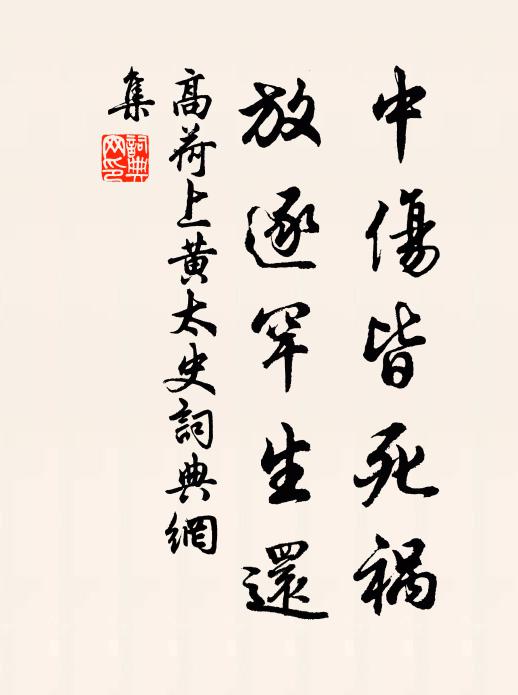 中傷皆死禍
放逐罕生還
高荷上黃太史詞典網
集
詞典
网印